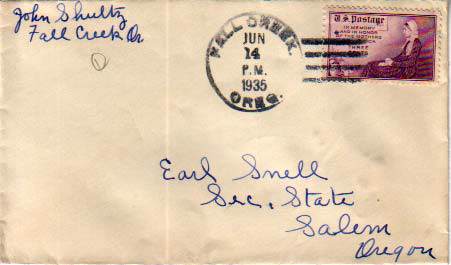 John Shultz
Fall Creek Or
FALL CREEK.
JUN
14
P.M.
1935
OREG.
U.S. Postage
IN MEMORY
AND IN HONOR
OF THE MOTHERS
THREE
CENTS
Earl Snell
Sec. State
Salem
Oregon